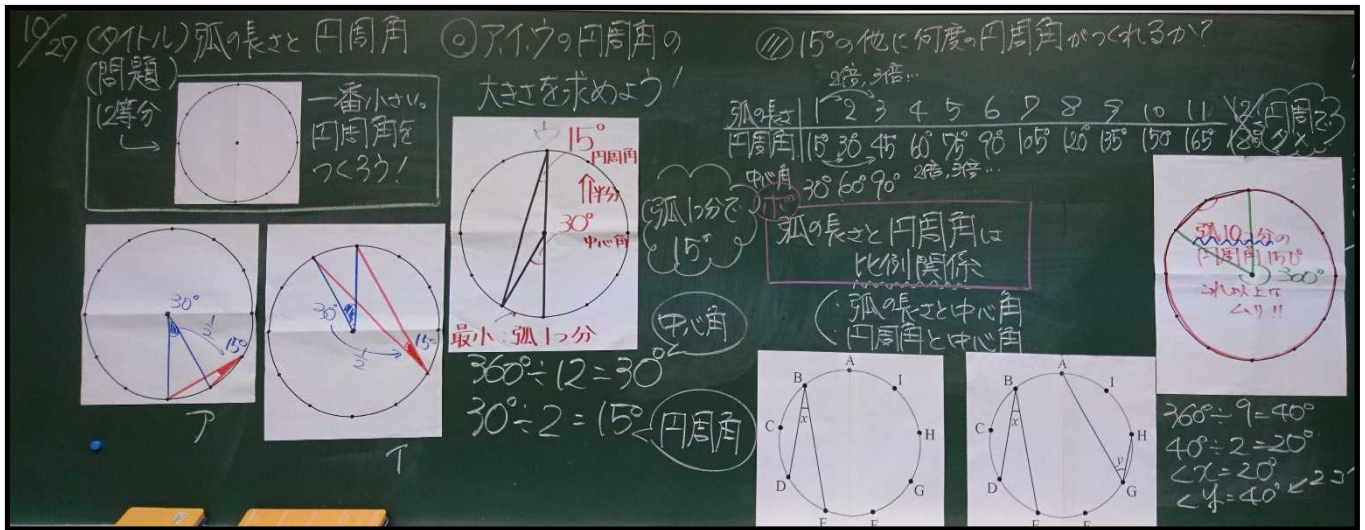 10/27 (タイトル)弧の長さと円周角
(問題)
12等分
一番小さい。
円周角を
つくろう!
30°
1/2
15°
ア
30°
1/2
15°
イ
◎ア,イ,ウの円周角の
大きさを求めよう!
ウ
15°
円周角
半分
30°
中心角
最小:弧1つ分
360°÷12=30°
中心角
30°÷2=15°
円周角
弧1つ分で
15°
15°の他に何度の円周角がつくれるか?
2倍,3倍…
弧の長さ 1 2 3 4 5 6 7 8 9 10 11 12
円周角 15° 30° 45 60° 75° 90° 105° 120° 135° 150° 165° 180
円周で
ダメ
中心角 30° 60° 90°
2倍,3倍…
弧の長さと円周角は
比例関係
・弧の長さと中心角
・円周角と中心角
弧10コ分の
円周角150°
300°
これ以上は
ムリ!!
A
B
I
x
C
H
D
G
E
F
A
B
I
x
C
H
y
D
G
E
F
360°÷9=40°
40°÷2=20°
<x=20°
<y=40°